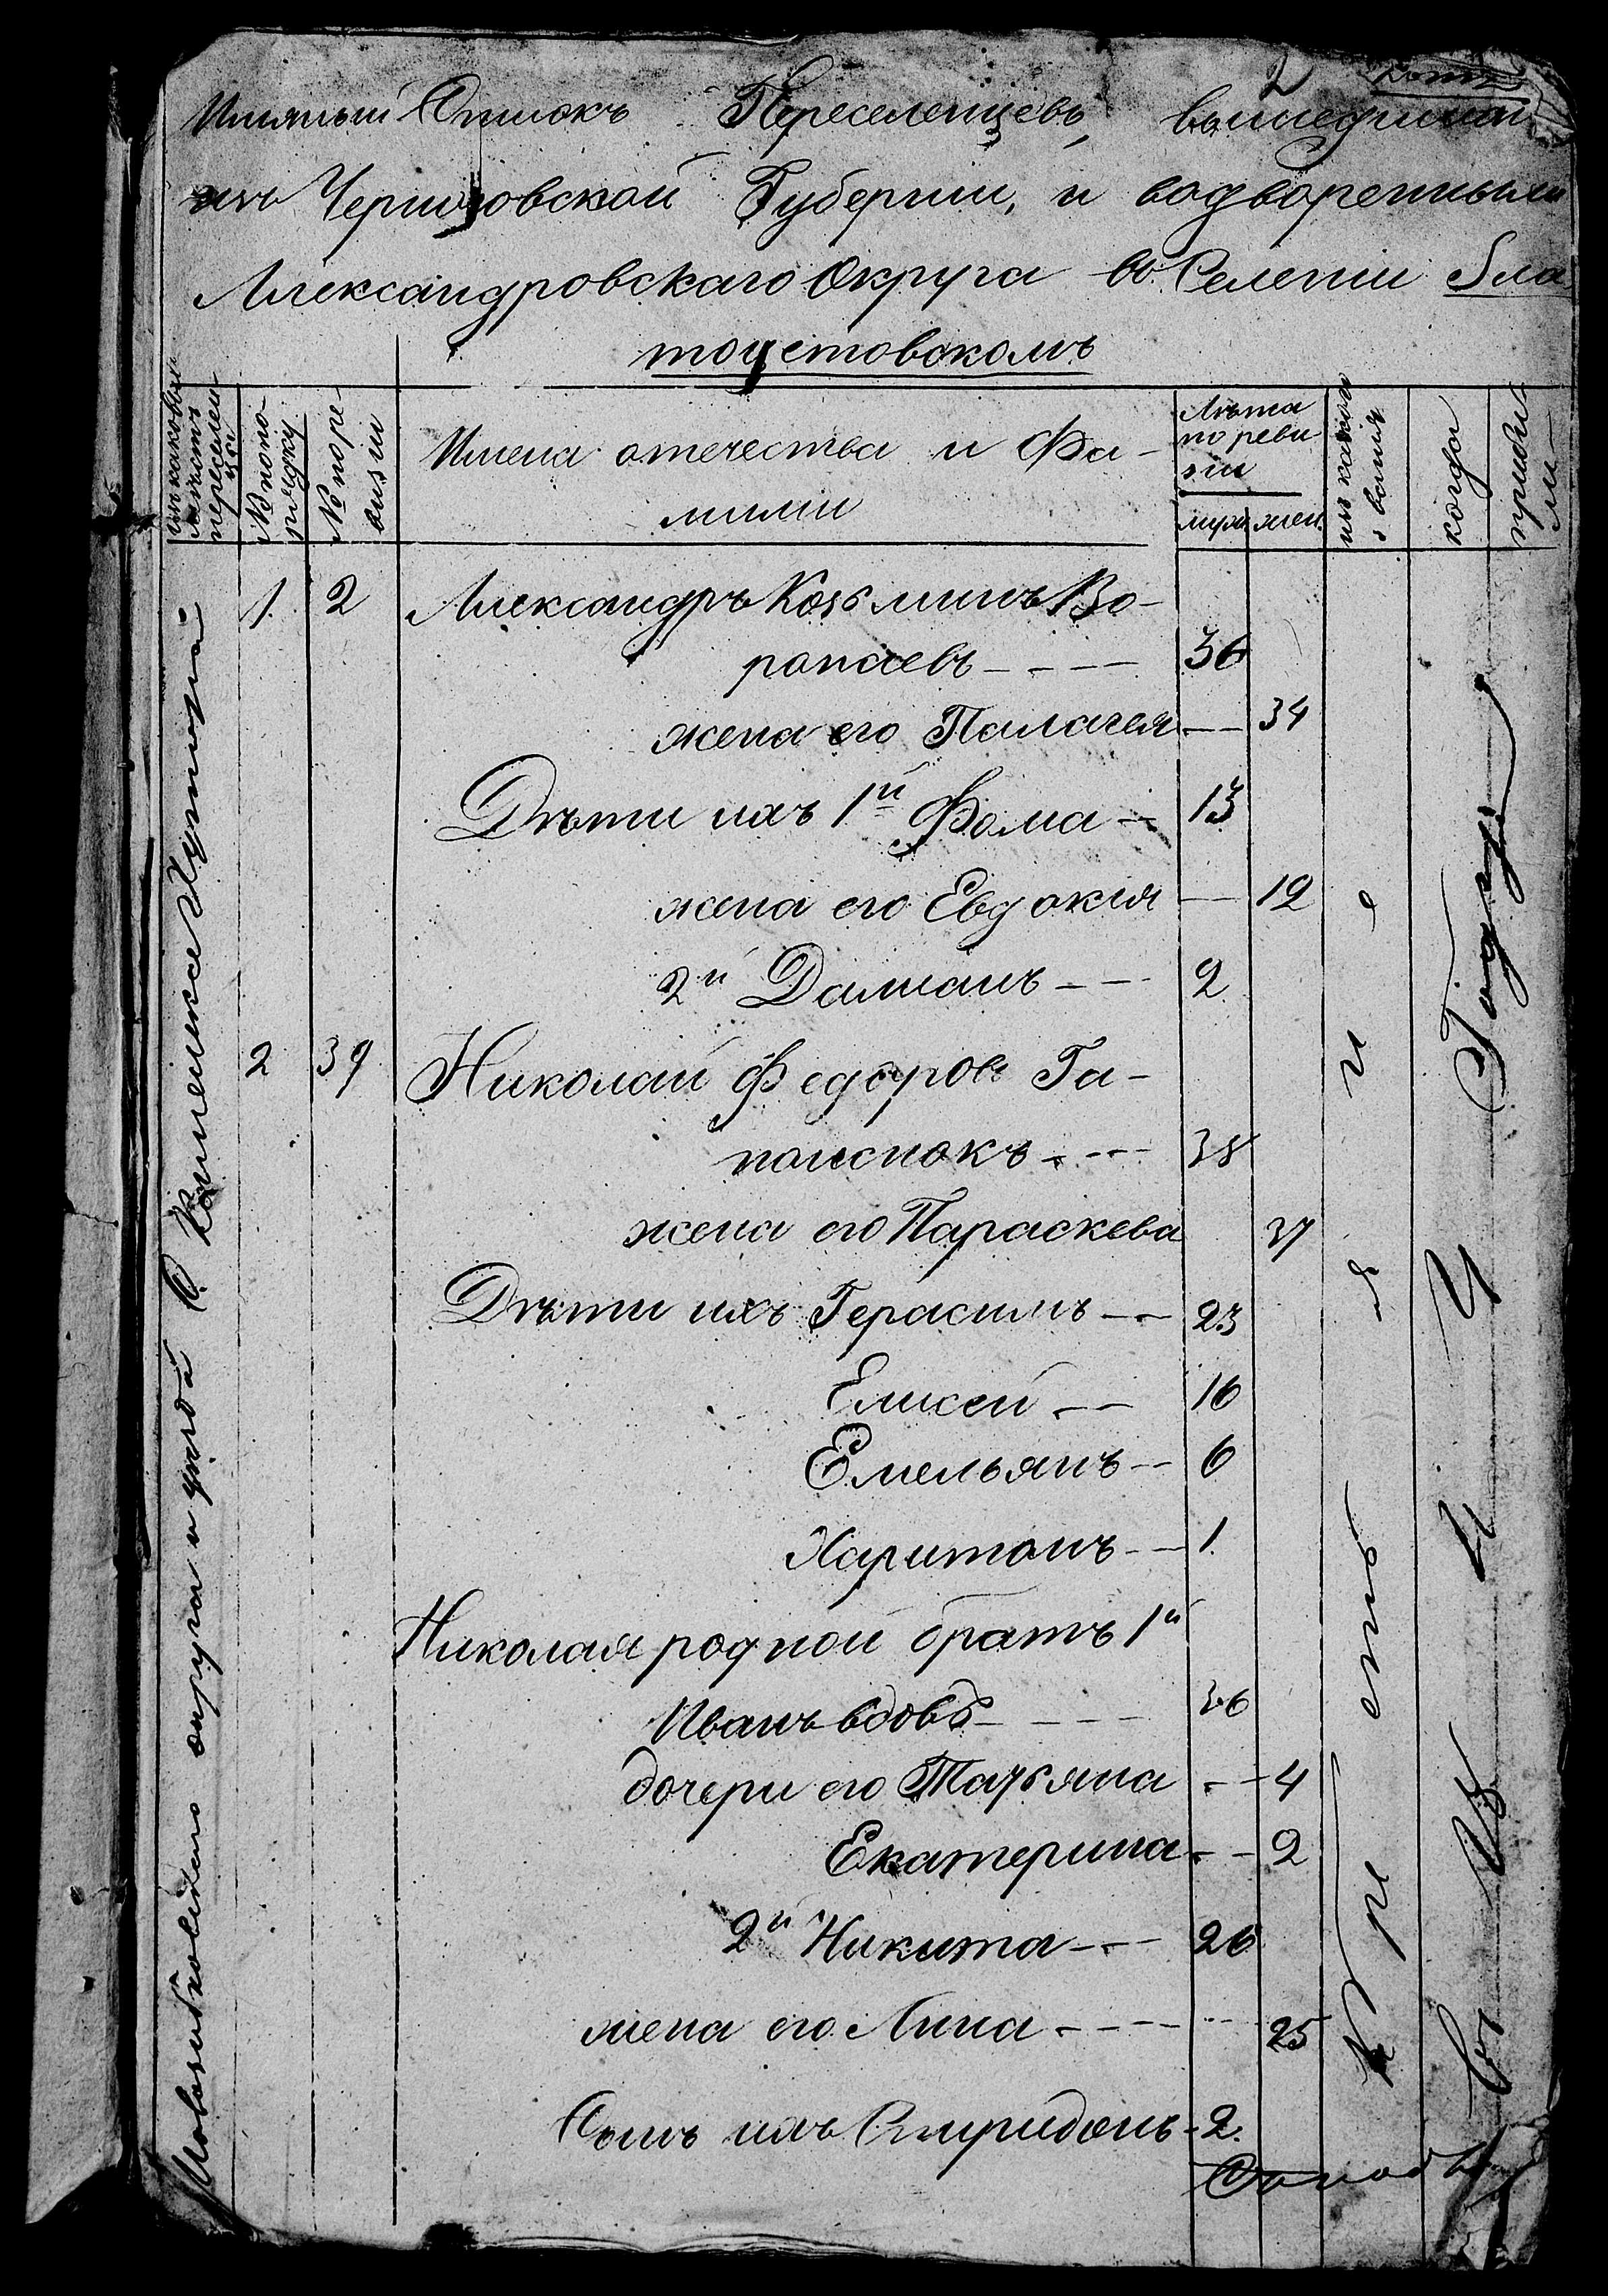 2
Имянный Списокъ Переселенцевъ вышедшимъ
изъ Черниговской Губерніи, и водвореннымъ
Александровскаго Округа въ Селеніи Зла
тоустовскомъ
изъ каковыхъ
мѣстъ
переселен
цы
№ по по-
рядку
№ по ре-
визіи
Имена отечества и Фа-
миліи
Лѣта
по реви
зіи
муж
жен.
изъ какого
званія
когда
прибы
ли
Новозыбковскаго округа и уѣзда С. Каменска Хутора
1. 2 Александръ Козьминъ Во-
ропаевъ 36
жена его Палагея 34
Дѣти ихъ 1й Фома 13
жена его Евдокія 12
2й Даміанъ 2
2 39 Николай Федоровъ Га-
понснокъ 38
жена его Параскева 37
Дѣти ихъ Герасимъ 23
Елисей 16
Емельянъ 6
Харитонъ 1.
Николая родной братъ 1й
Иванъ вдовъ 36
дочери его Татьяна 4
Екатерина 2
2й Никита 26
жена его Анна 25
Сынъ ихъ Спиридонъ 2.
Крестьяне
Году